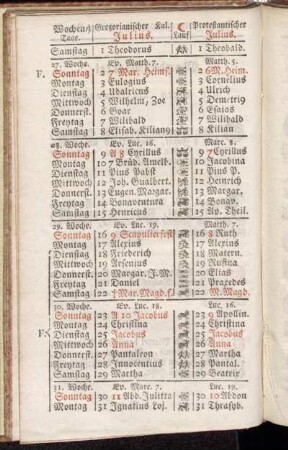 Wochen/ Gregorianischer Kal. ☾ Protestantischer
Tage. Julius. Lauf Julius.
Samstag 1 Theodorus 1 Theobald.
27. Woche. Ev. Matth. 7. Matth. 5.
F. Sonntag 2 7 Mar. Heims. 2 6 M. Heim.
Montag 3 Eulogius 3 Cornelius
Dienstag 4 Udalricus 4 Ulrich
Mittwoch 5 Wilhelm, Zoe 5 Demetrig
Donnerst. 6 Goar 6 Esaias
Freytag 7 Wilibald 7 Wilibald
Samstag 8 Elisab. Kilianq 8 Kilian
28. Woche. Ev. Luc. 16. Marc. 8.
Sonntag 9 A 8 Cyrillus 9 7 Cyrillus
Montag 10 7 Brüd. Amelb. 10 Jacobina
Dienstag 11 Pius Pabst 11 Pius
Mittwoch 12 Joh. Gualbert. 12 Heinrich
Donnerst. 13 Eugen. Margar. 13 Margar.
Freytag 14 Bonaventura 14 Bonav.
Samstag 15 Henricus 15 Ap. Theil.
29. Woche. Ev. Luc. 19. Matth. 7.
Sonntag 16 9 Scapulierfest 16 8 Ruth
Montag 17 Alexius 17 Alexius
Dienstag 18 Friederich 18 Matern.
Mittwoch 19 Arsenius 19 Rufina
Donnerst. 20 Margar. J. M. 20 Elias
Freytag 21 Daniel 21 Praxedes
Samstag 22 † Mar. Magd. f. 22 M. Magd.
30. Woche. Ev. Luc. 18. Luc. 16.
Sonntag 23 A 10 Jacobus 23 9 Apollin.
Montag 24 Christina 24 Christin.
F. Dienstag 25 Jacobus 25 Jacobus
Mittwoch 26 Anna 26 Anna
Donnerst. 27 Pantaleon 27 Martha
Freytag 28 Innocentius 28 Pantal.
Samstag 29 Martha 29 Beatrix
31. Woche. Ev. Marc. 7. Luc. 19.
Sonntag 30 11 Abd. Julitta 30 10 Abdon
Montag 31 Ignatius Loj. 31 Thrasyb.